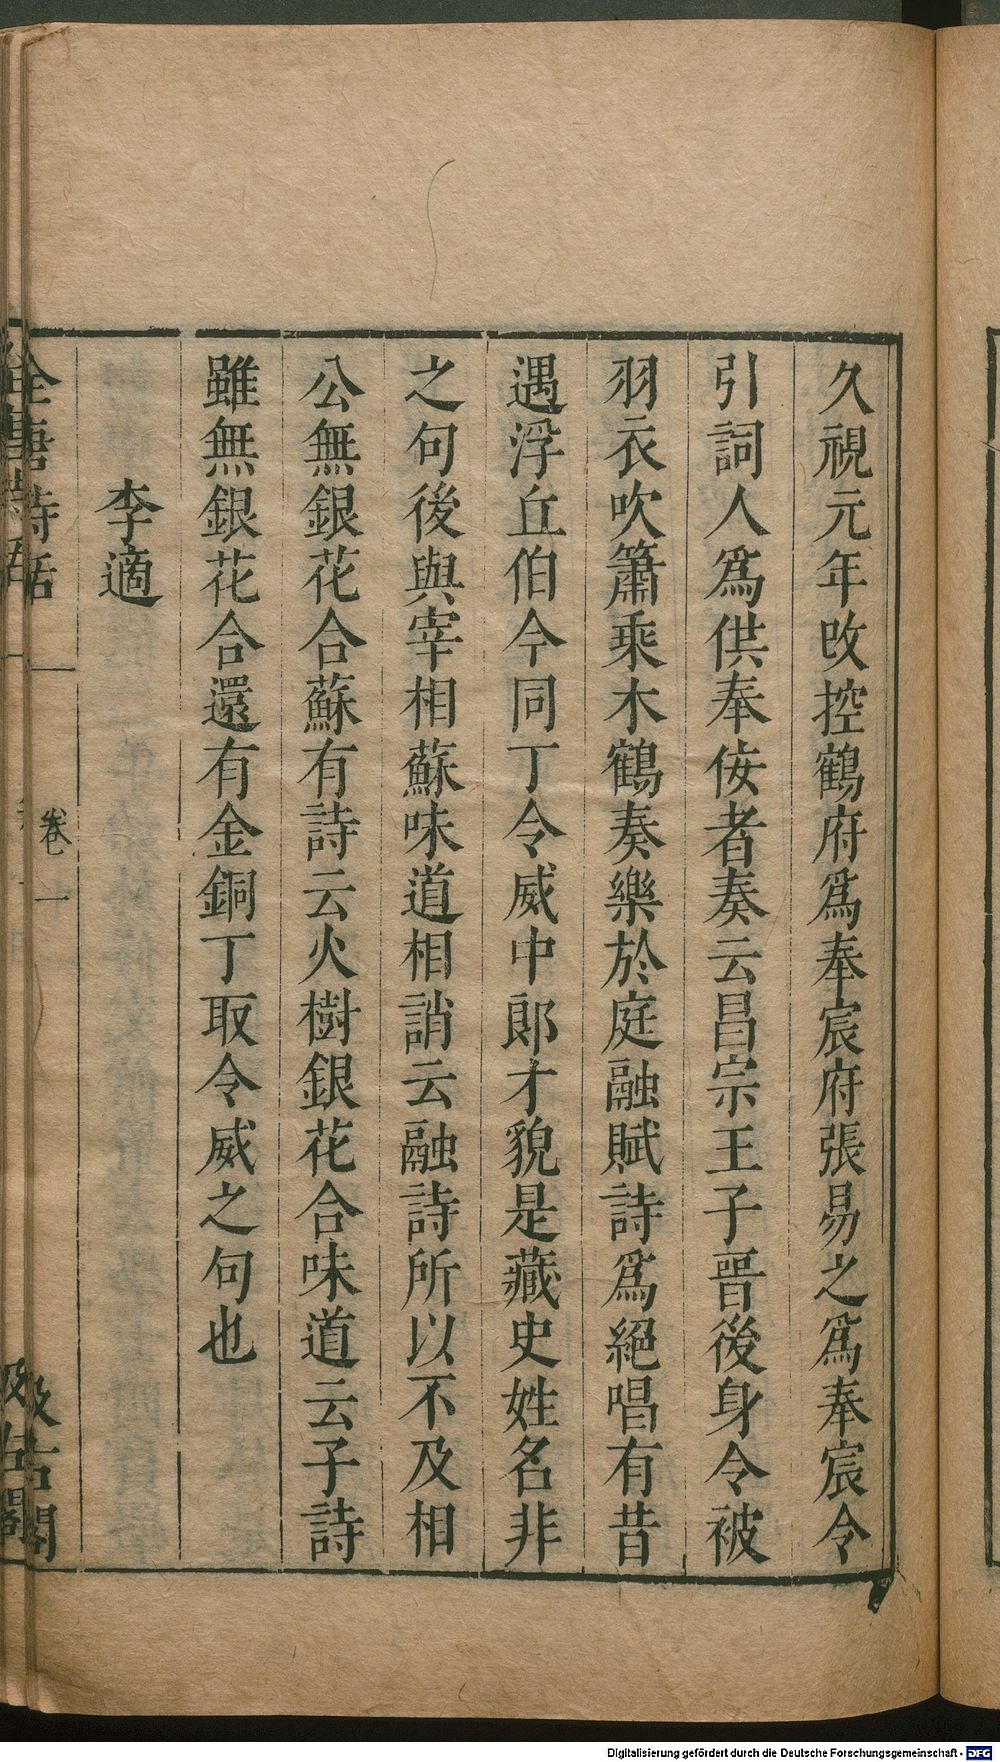 久視元年改控鶴府爲奉宸府張易之爲奉宸令
引詞人爲供奉佞者奏云昌宗王子晉後身令被
羽衣吹簫乘木鶴奏樂於庭融賦詩爲絕唱有昔
遇浮丘伯今同丁令威中郎才貌是藏史姓名非
之句後與宰相蘇味道相誚云融詩所以不及相
公無銀花合蘇有詩云火樹銀花合味道云子詩
雖無銀花合還有金銅丁取令威之句也
李適
全唐詩話 卷一 汲古閣
Digitalisierung gefördert durch die Deutsche Forschungsgemeinschaft - DFG